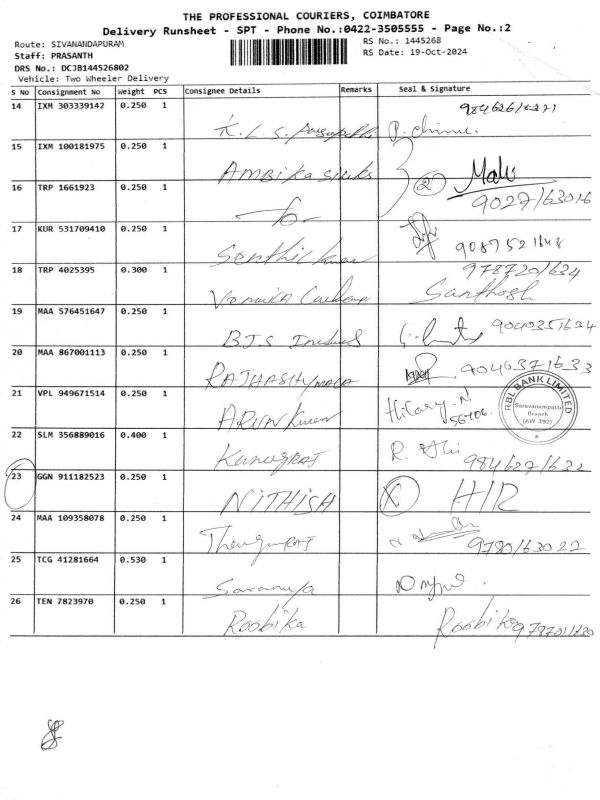 THE PROFESSIONAL COURIERS, COIMBATORE
Delivery Runsheet - SPT - Phone No.:0422-3505555 - Page No.:2
Route: SIVANANDAPURAM
RS No.: 1445268
Staff: PRASANTH
RS Date: 19-Oct-2024
DRS No.: DCJB144526802
Vehicle: Two Wheeler Delivery
S No Consignment No Weight PCS Consignee Details Remarks Seal & Signature
14 IXM 303339142 0.250 1
K.L.S.
15 IXM 100181975 0.250 1
AMBIKA Silks
16 TRP 1661923 0.250 1 2
9027/63016
17 KUR 531709410 0.250 1
Senthil 9087521148
18 TRP 4025395 0.300 1 978720/634
Santhosh
19 MAA 576451647 0.250 1
BJS
20 MAA 867001113 0.250 1
21 VPL 949671514 0.250 1 Hilary.N
ARUN RBL BANK LIMITED
Saravanampatti
Branch
(AW-392)
22 SLM 356889016 0.400 1
984627/632
23 GGN 911182523 0.250 1
NITHISH X H/R
24 MAA 109358078 0.250 1
9790/63022
25 TCG 41281664 0.530 1
Saranya
26 TEN 7823970 0.250 1
Roobika Roobika